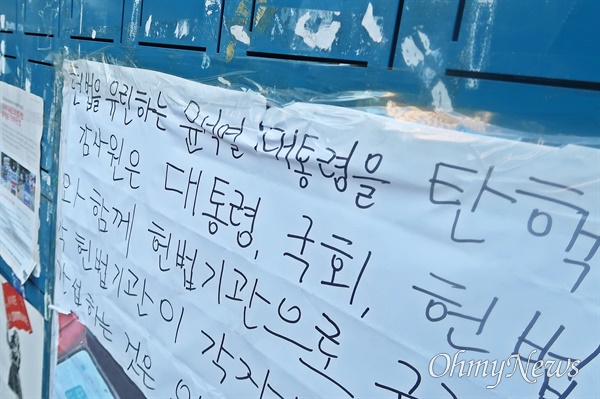 헌법을 유린하는 윤석열 대통령을 탄핵
감사원은 대통령, 국회, 헌법
와 함께 헌법기관으로
헌법기관이 각자
하는 것은
OhmyNews